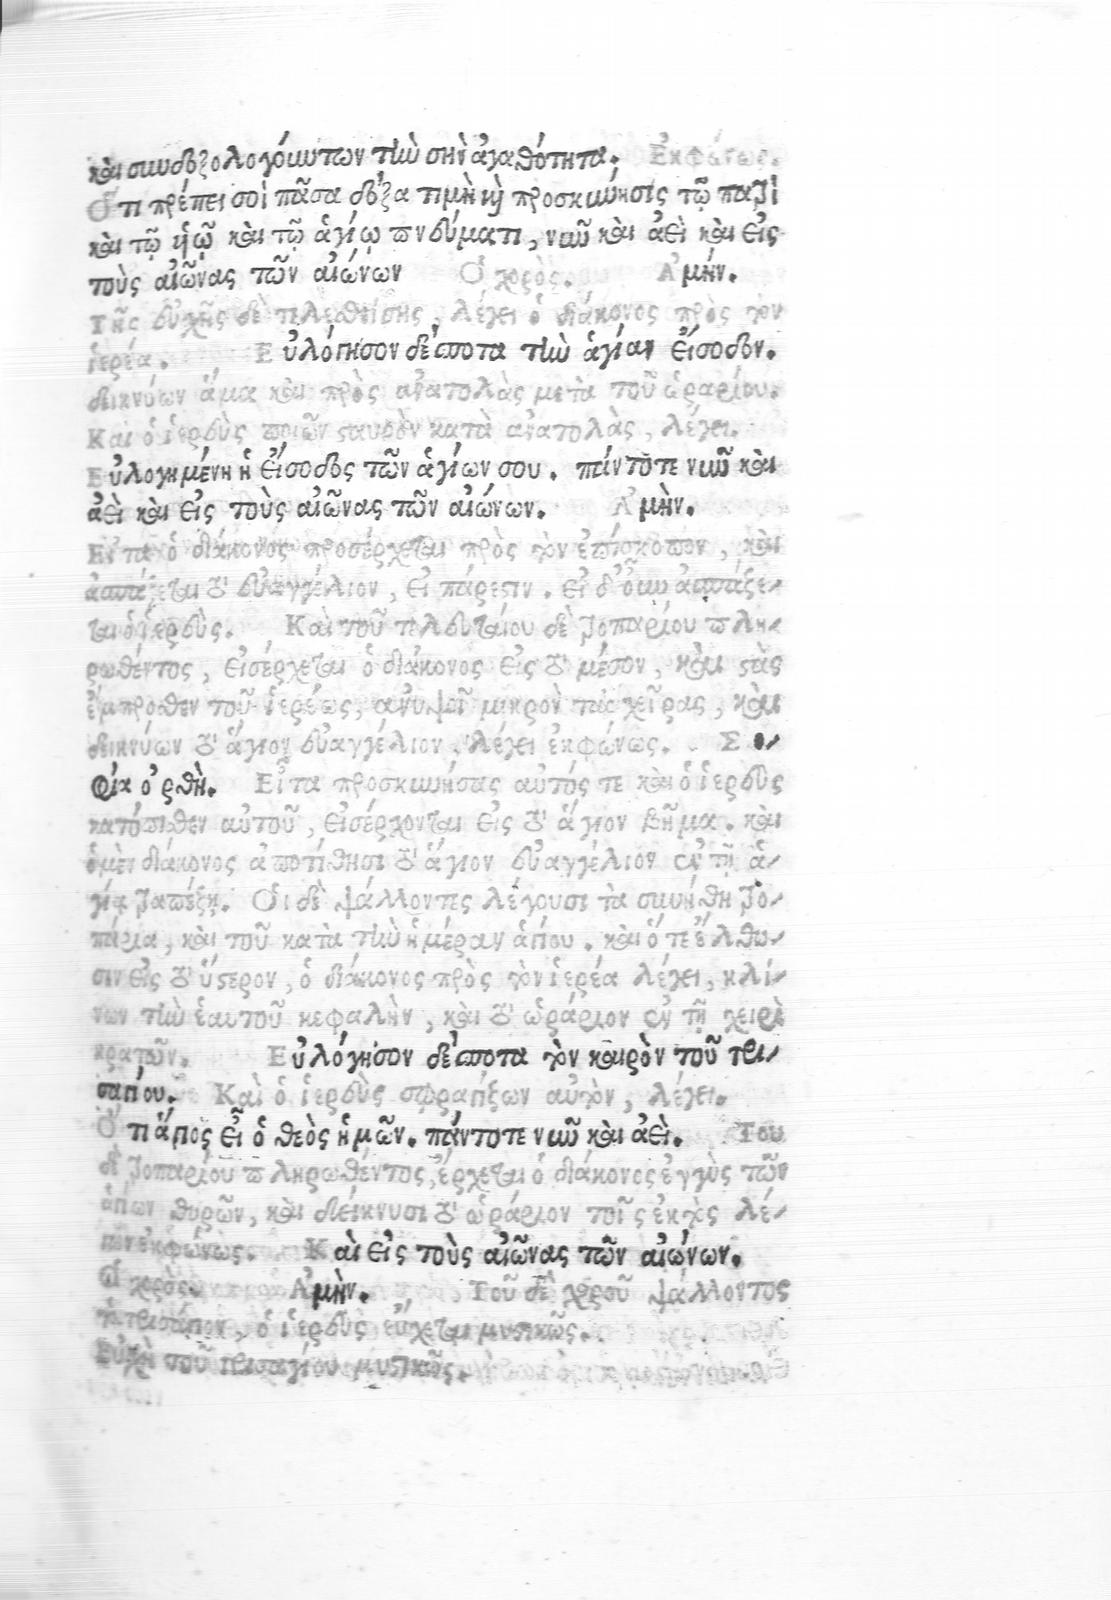 καὶ συνδοξολογούντων τὴν σὴν ἀγαθότητα. Ἐκφώνως.
Ὅτι πρέπει σοὶ πᾶσα δόξα τιμὴ καὶ προσκύνησις τῷ πατρὶ
καὶ τῷ ὑῷ καὶ τῷ ἁγίῳ πνεύματι, νῦν καὶ ἀεὶ καὶ εἰς
τοὺς αἰῶνας τῶν αἰώνων Ὁ χορὸς. Ἀμήν.
Τῆς εὐχῆς δὲ τελεσθείσης, λέγει ὁ διάκονος πρὸς τὸν
ἱερέα. Εὐλόγησον δέσποτα τὴν ἁγίαν εἴσοδον.
δεικνύων ἅμα καὶ πρὸς ἀνατολὰς μετὰ τοῦ ὡραρίου.
Καὶ ὁ ἱερεὺς ποιῶν σαυρὸν κατὰ ἀνατολὰς, λέγει.
Εὐλογημένη ἡ εἴσοδος τῶν ἁγίων σου. πάντοτε νῦν καὶ
ἀεὶ καὶ εἰς τοὺς αἰῶνας τῶν αἰώνων. Ἀμὴν.
Εἶτα ὁ διάκονος προσέρχεται πρὸς τὸν ἐπίσκοπον, καὶ
ἀσπάζεται τὸ εὐαγγέλιον, εἰ πάρεστιν. εἰ δ' οὖν ἀσπάζε-
ται ὁ ἱερεὺς. Καὶ τοῦ τελευταίου δὲ τροπαρίου πλη-
ρωθέντος, εἰσέρχεται ὁ διάκονος εἰς τὸ μέσον, καὶ στὰς
ἔμπροσθεν τοῦ ἱερέως, ἀνυψοῖ μικρὸν τὰς χεῖρας, καὶ
δεικνύων τὸ ἅγιον εὐαγγέλιον, λέγει ἐκφώνως. Σο-
φία ὀρθὴ. Εἶτα προσκυνήσας αὐτός τε καὶ ὁ ἱερεὺς
κατόπισθεν αὐτοῦ, εἰσέρχονται εἰς τὸ ἅγιον βῆμα. καὶ
ὁ μὲν διάκονος ἀποτίθησι τὸ ἅγιον εὐαγγέλιον ἐν τῇ ἁ-
γίᾳ τραπέζῃ. Οἱ δὲ ψάλλοντες λέγουσι τὰ συνήθη τρο-
πάρια, καὶ τοῦ κατὰ τὴν ἡμέραν ἁγίου. καὶ ὅτε ἔλθω-
σιν εἰς τὸ ὕστερον, ὁ διάκονος πρὸς τὸν ἱερέα λέγει, κλί-
νων τὴν ἑαυτοῦ κεφαλὴν, καὶ τὸ ὡράριον ἐν τῇ χειρὶ
κρατῶν. Εὐλόγησον δέσποτα τὸν καιρὸν τοῦ τρι-
σαγίου. Καὶ ὁ ἱερεὺς σφραγίζων αὐτὸν, λέγει.
Ὅτι ἅγιος εἶ ὁ θεὸς ἡμῶν. πάντοτε νῦν καὶ ἀεὶ. Του
δὲ τροπαρίου πληρωθέντος, ἔρχεται ὁ διάκονος ἐγγὺς τῶν
ἁγίων θυρῶν, καὶ δείκνυσι τὸ ὡράριον τοῖς ἐκτὸς λέ-
γων ἐκφώνως. Καὶ εἰς τοὺς αἰῶνας τῶν αἰώνων.
Ὁ χορὸς. Ἀμὴν. Τοῦ δὲ χοροῦ ψάλλοντος
τὸ τρισάγιον, ὁ ἱερεὺς εὔχεται μυστικῶς.
Εὐχὴ τοῦ τρισαγίου μυστικῶς.